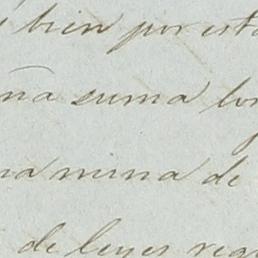 bien por est
ña suma lo
na mina de
de leyes reg